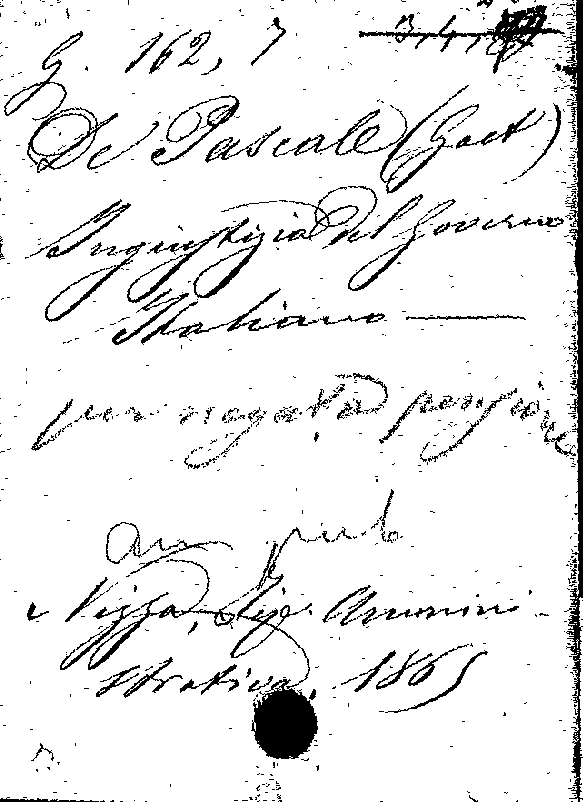 G. 162, 7
De Pascale (Gaet)
Ingiustizia del Governo
Italiano —
per negata pensione
Nizza, Tip. Ammini-
strativa, 1865